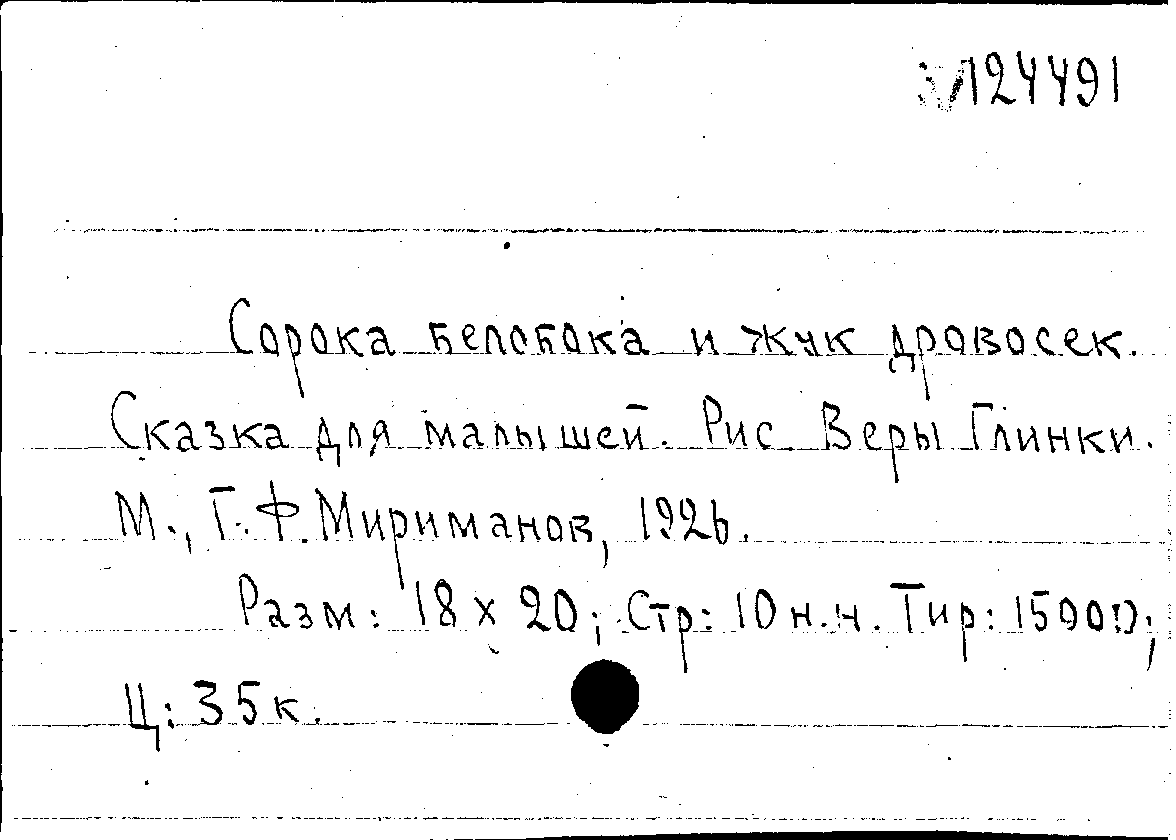 124491
Сорока белобока и жук дровосек.
Сказка для малышей. Рис. Веры Глинки.
М., Г.Ф. Мириманов, 1926.
Разм: 18 x 20; Стр: 10 н.н. Тир: 15000;
Ц: 35 к.